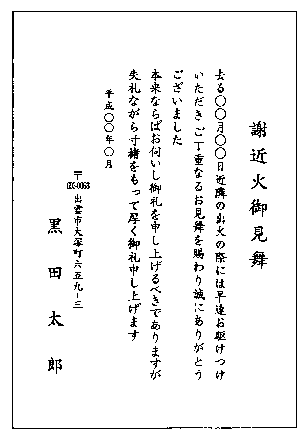 謝近火御見舞
去る〇〇月〇〇日近隣の出火の際には早速お駆けつけ
いただきご丁重なるお見舞を賜わり誠にありがとう
ございました
本来ならばお伺いし御礼を申し上げるべきでありますが
失礼ながら寸楮をもって厚く御礼申し上げます
平成〇〇年〇月
〒693-0063
出雲市大塚町六五九-三
黒田太郎